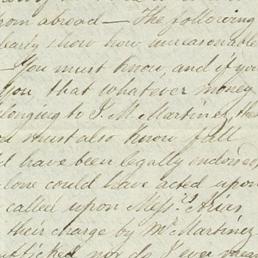 from abroad — The following
clearly show how unreasonable
— You must know, and if you
you that whatever money
belonging to J. M. Martinez, the
must also know full
have been legally endorsed
alone could have acted upon
called upon Messrs Arias
their charge by Mr Martinez
nor do I ever